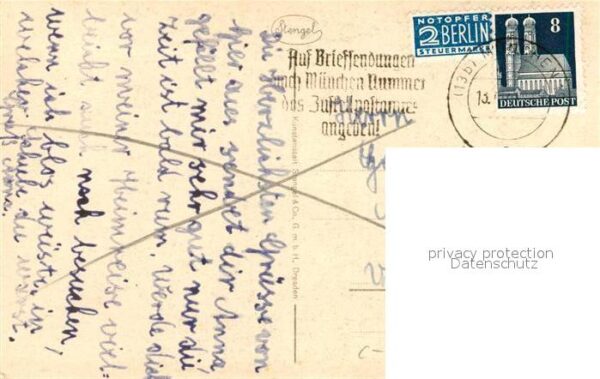 Stengel
NOTOPFER
2 BERLIN
STEUERMARKE
8
DEUTSCHE POST
(13b) MÜNCHEN
Auf Briefsendungen
nach München Nummer
des Zustellpostamtes
angeben!
Die Herzlichsten Grüsse von
hier aus sendet dir Anna
gefällt mir sehr gut nur die
Zeit ist bald rum. Werde dich
vor meiner Heimreise viel-
leicht noch besuchen
wenn ich blos weiss, in
welcher
Gruß Anna.
Herrn
Kunstanstalt Stengel & Co., G. m. b. H., Dresden
privacy protection
Datenschutz